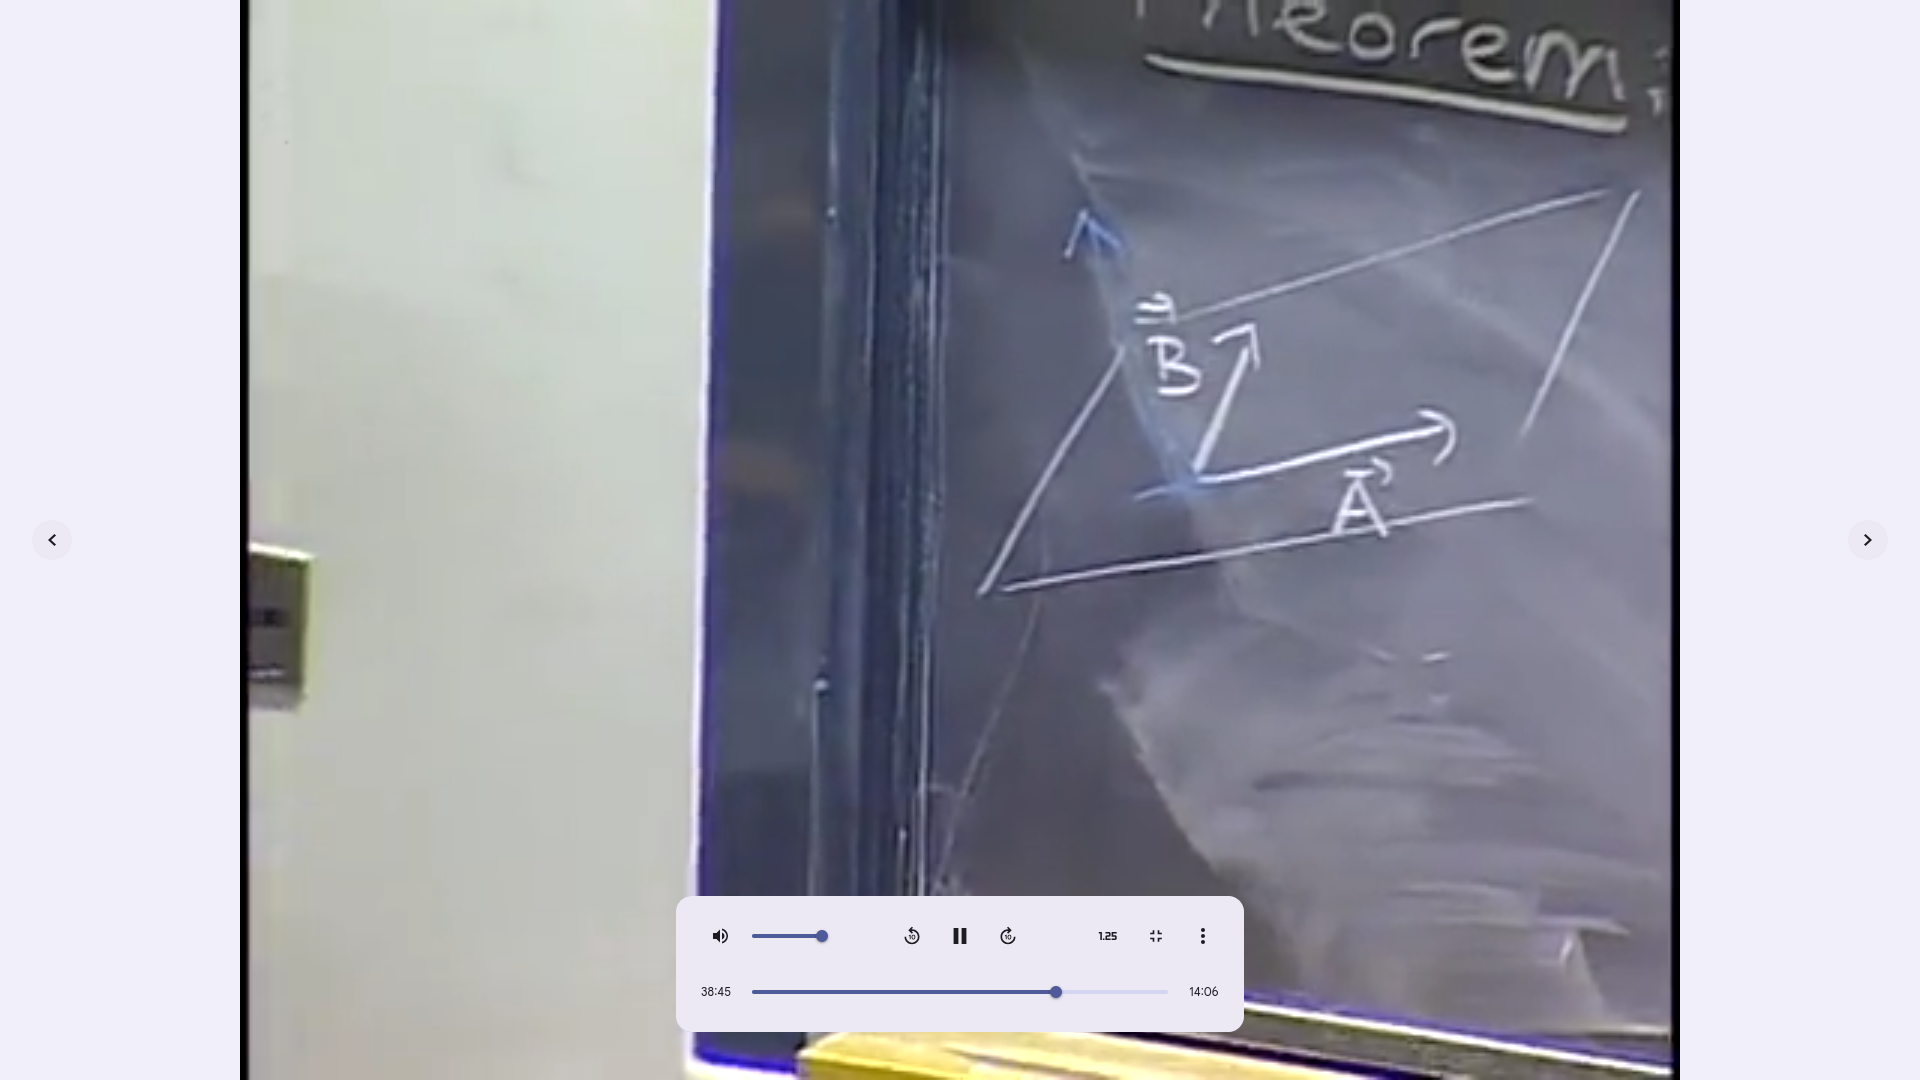 Theorem:
B
A
10
10
1.25
38:45
14:06